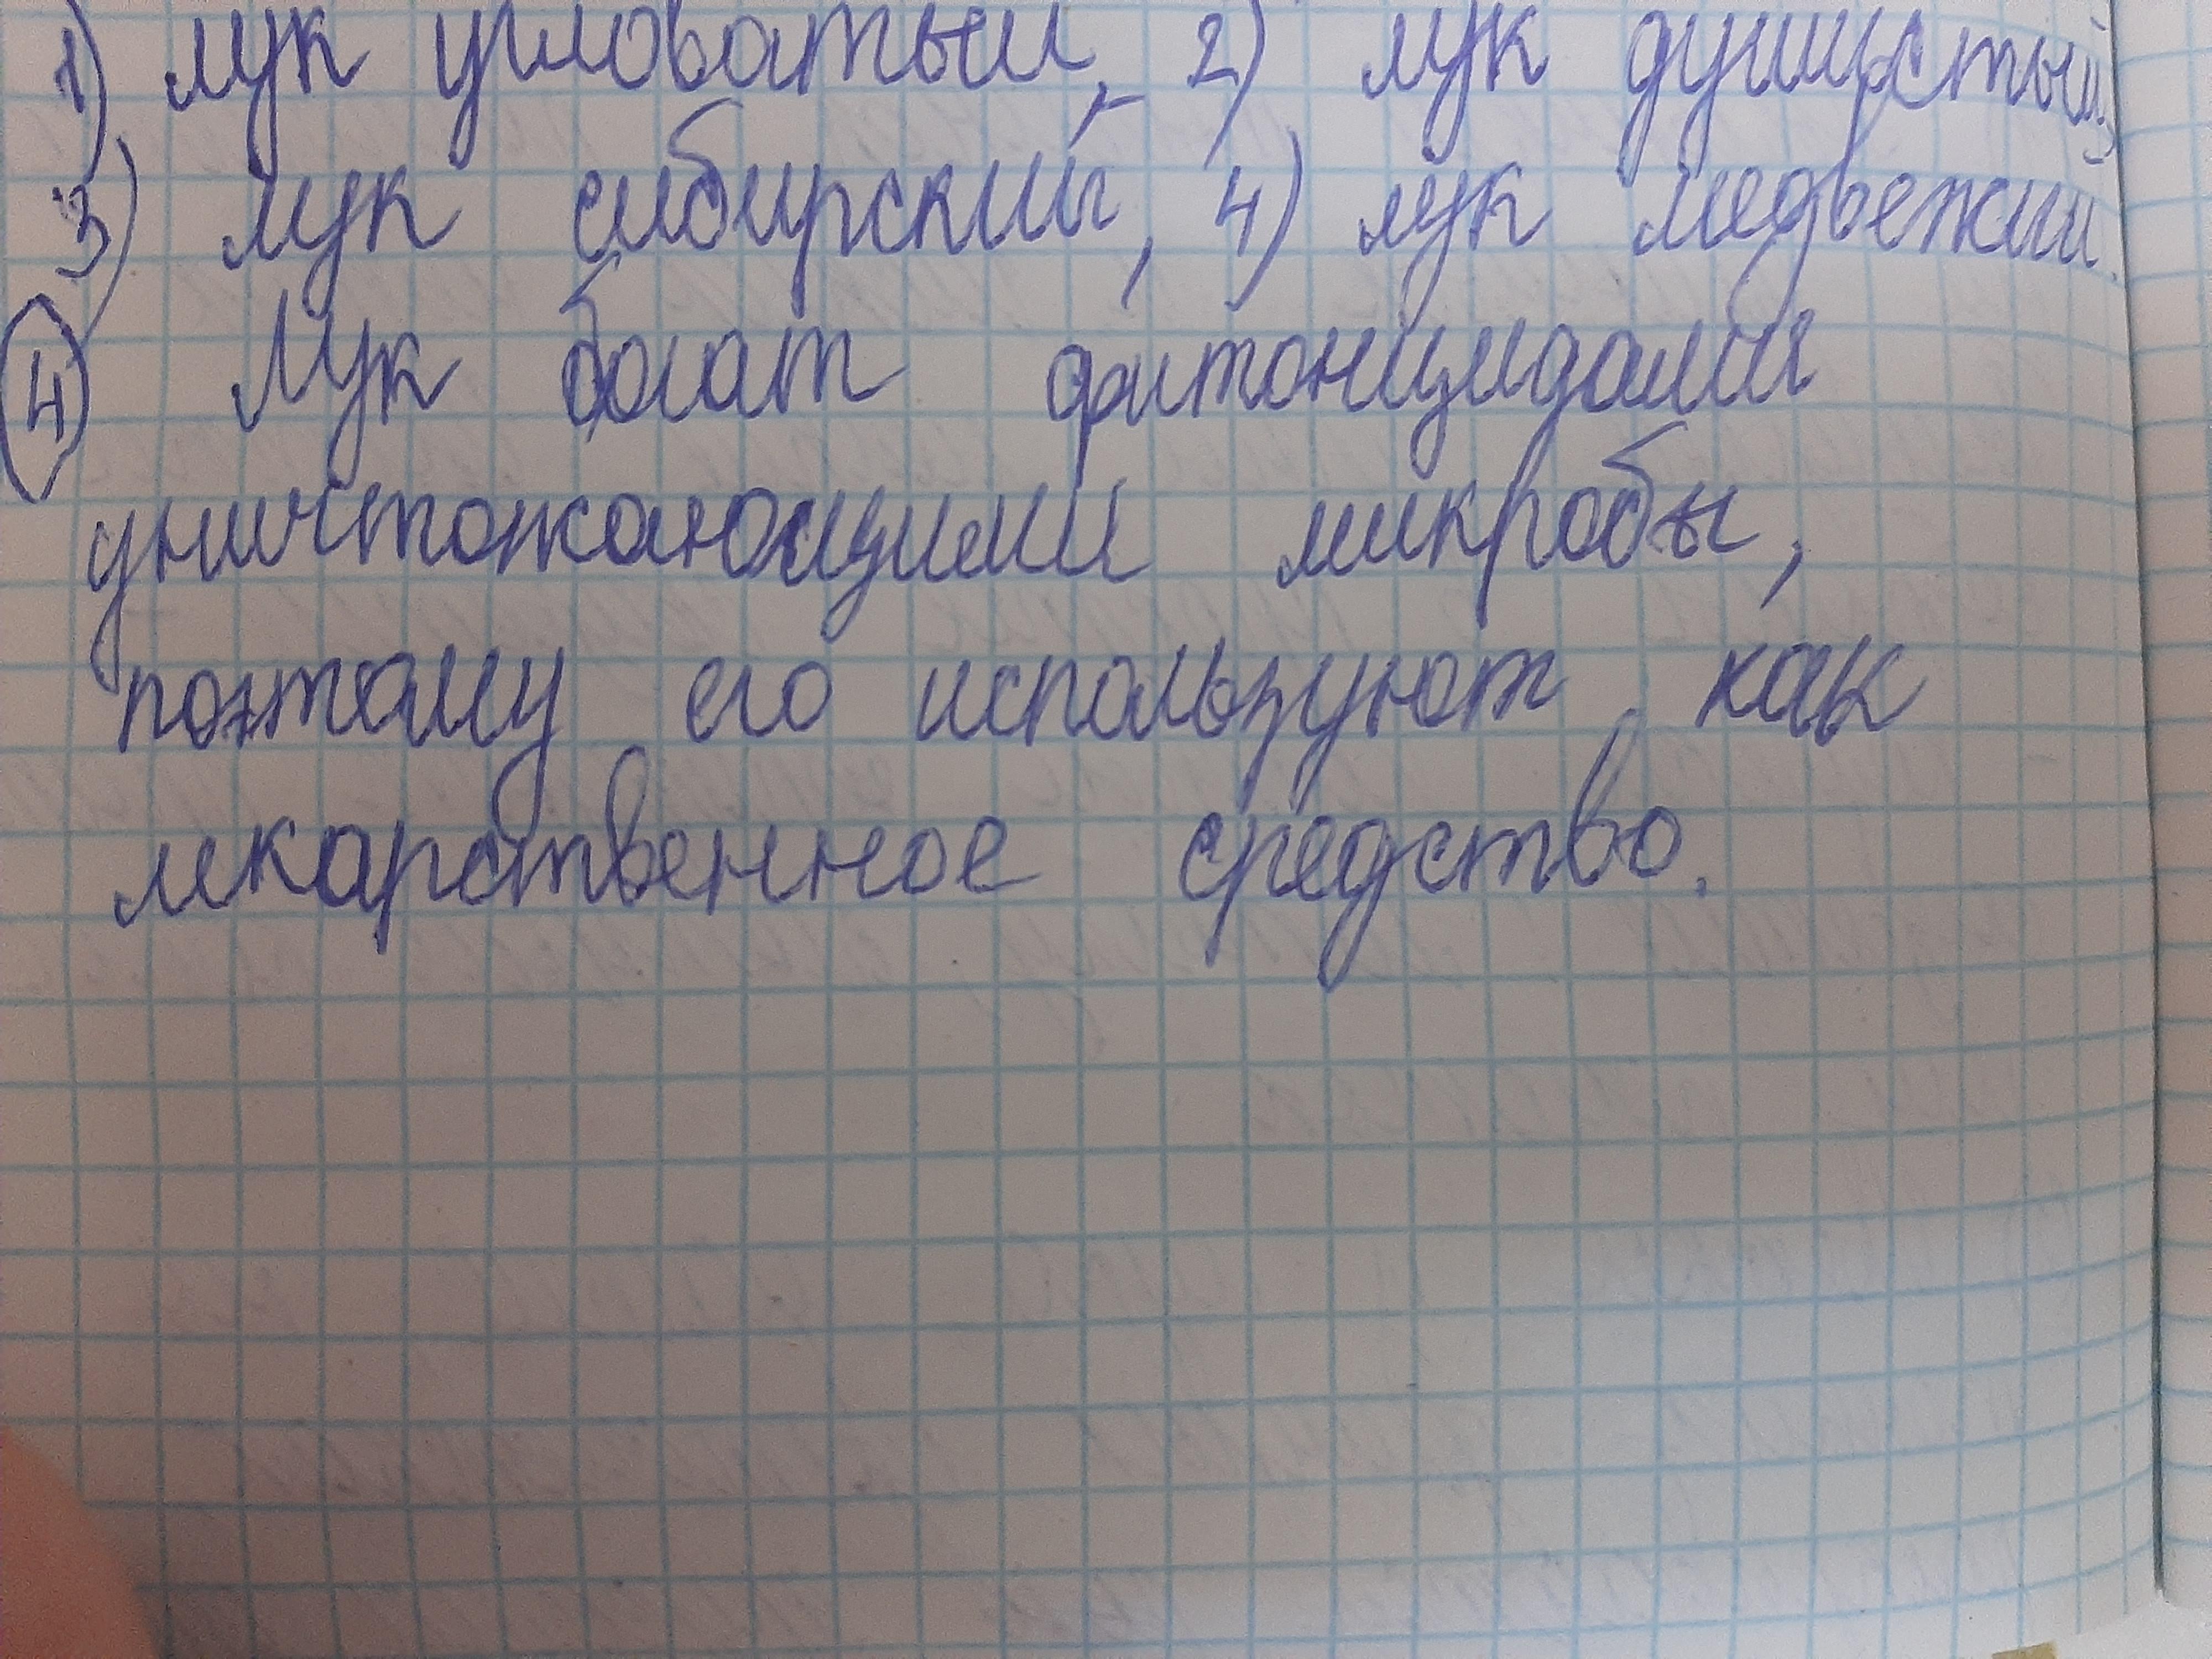 1) лук угловатый, 2) лук душистый,
3) лук сибирский, 4) лук медвежий.
4 Лук богат фитонцидами
уничтожающими микробы,
поэтому его используют как
лекарственное средство.